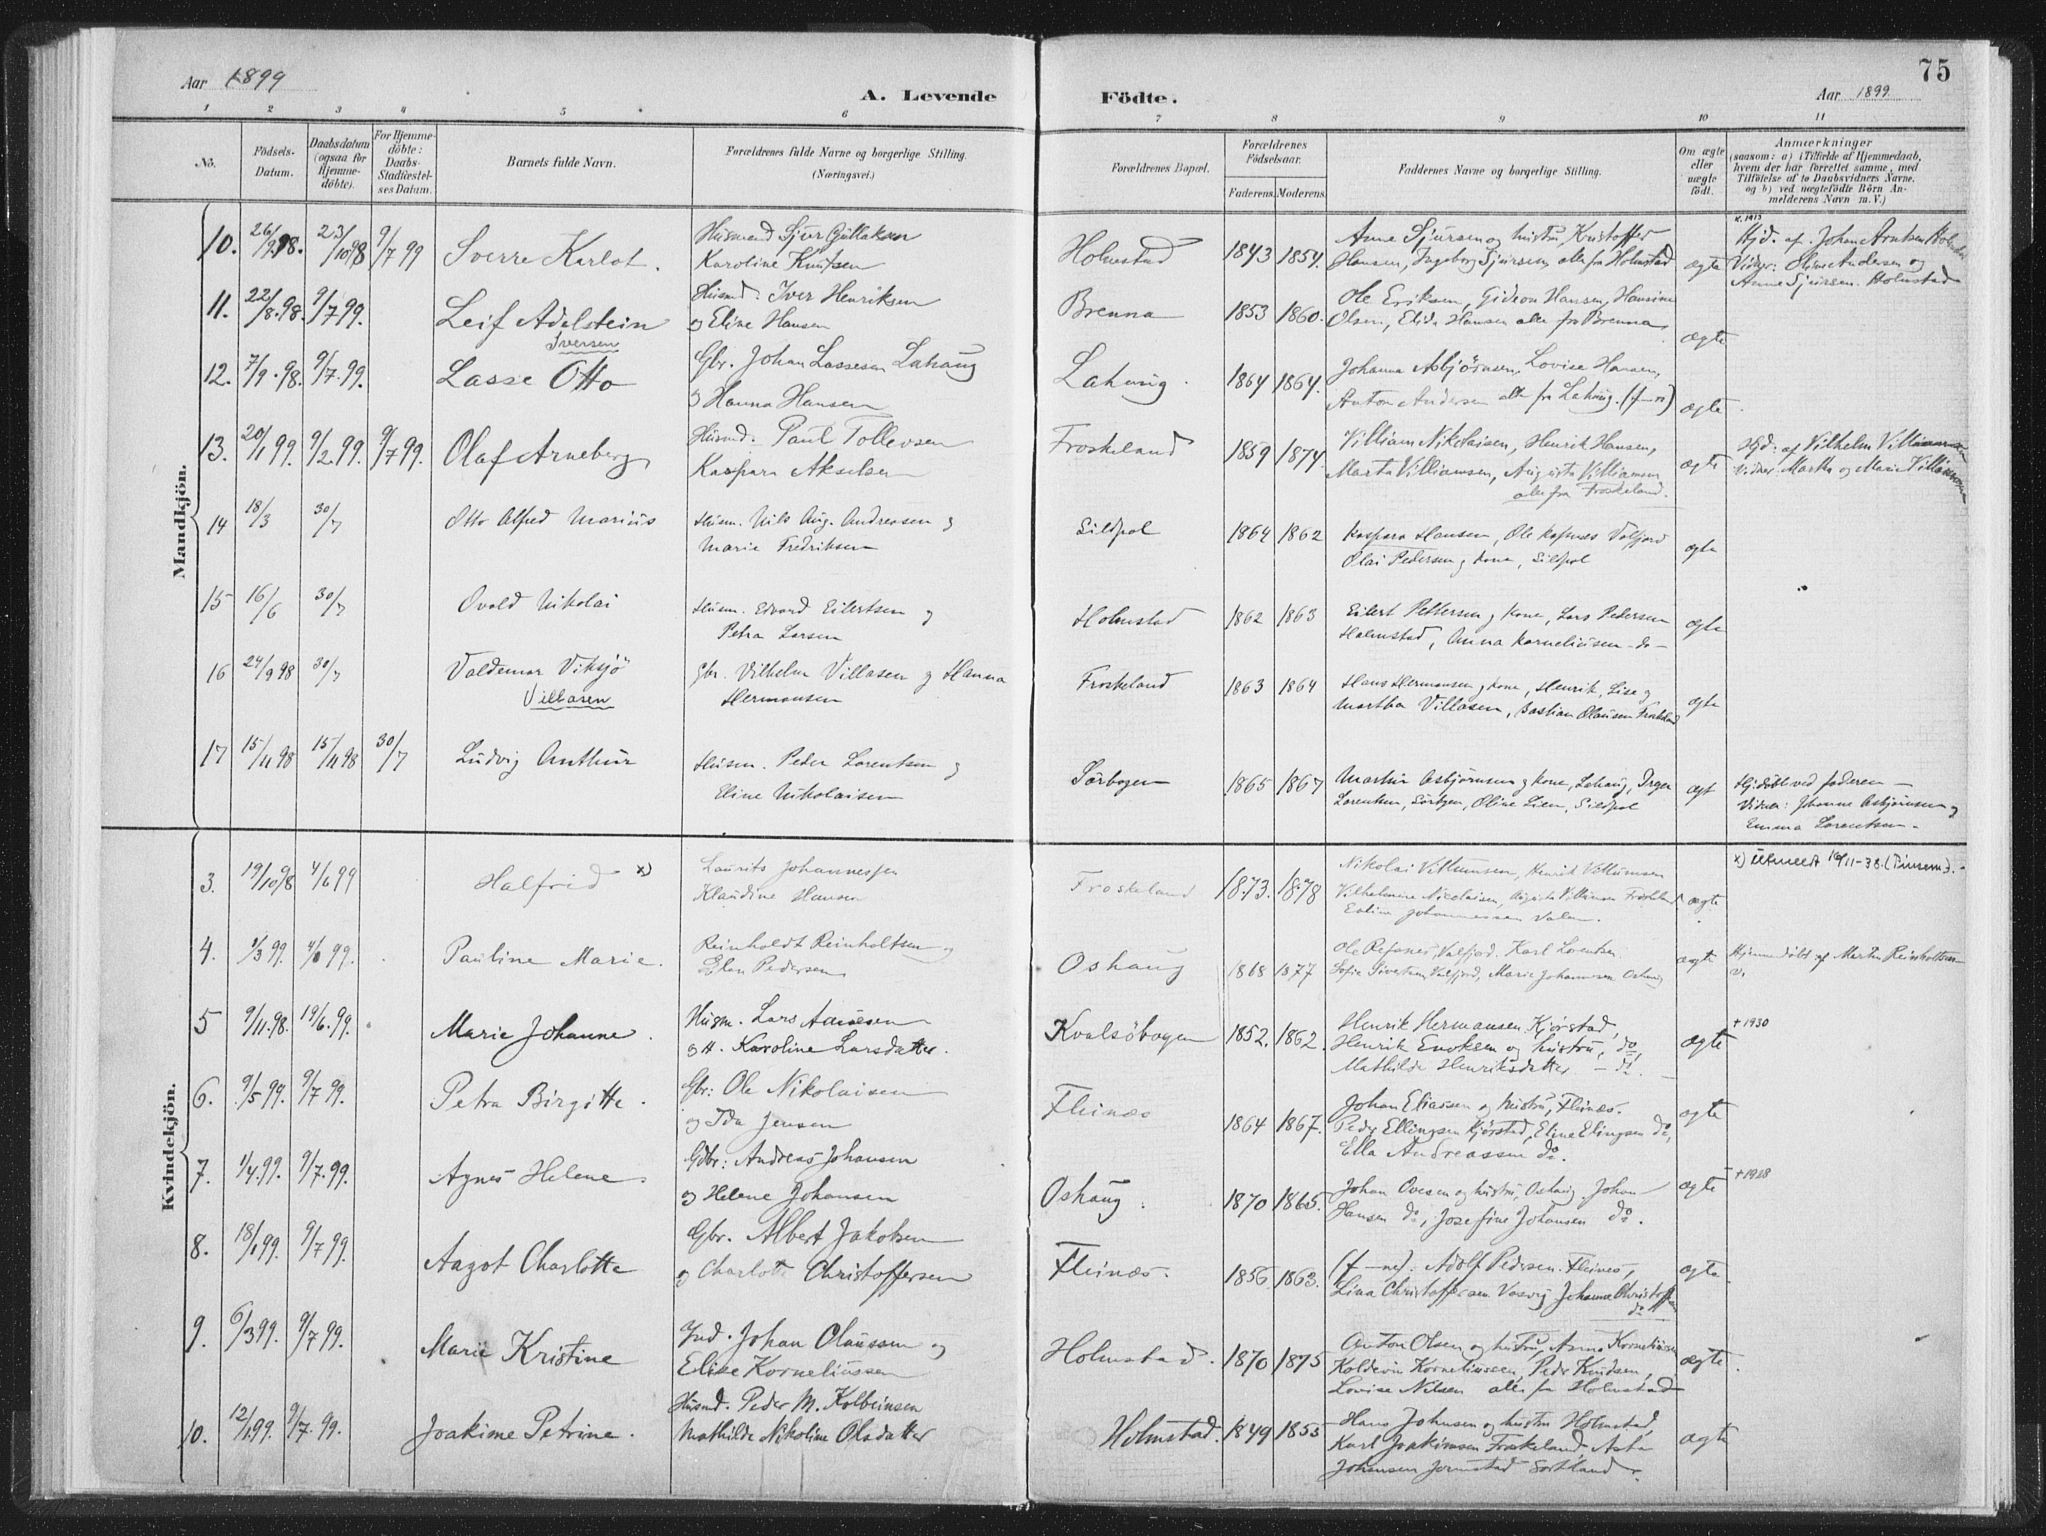 75
Aar 1899
A. Levende
Födte.
Aar 1899
1 2 3 4 5 6 7 8 9 10 11
No.
Födsels-Datum.
Daabsdatum (ogsaa for Hjemmedöbte).
For Hjemmedöbte: Daabs-Stadfæstelses Datum.
Barnets fulde Navn.
Forældrenes fulde Navne og borgerlige Stilling.
(Næringsvei.)
Forældrenes Bopæl.
Forældrenes Födselsaar.
Faderens. Moderens.
Faddernes Navne og borgerlige Stilling.
Om ægte eller uægte födt.
Anmærkninger
(saasom: a) i Tilfælde af Hjemmedaab,
hvem der har forrettet samme, med
Tilföielse af to Daabsvidners Navne.
og b) ved uægtefödte Börn An-
melderens Navn m. V.)
Mandkjön.
10. 26/9 98. 23/10 98 9/7 99 Sverre Karlot. Husmand Sjur Gullaksen
Karoline Knutsen
Holmstad 1843 1854. Anne Sjursen og hustru, Kristoffer
Hansen, Ingeborg Sjursen, alle fra Holmstad ægte
Hjd. af. Johan Arntsen Holmstad
Vidner: Oline Andersen og
Anne Sjursen. Holmstad
11. 22/8. 98. 9/7 99. Leif Adelstein
Iversen
Husmd. Iver Henriksen
og Eline Hansen
Brenna 1853 1860. Ole Eriksen, Gideon Hansen, Hansine
Olsen, Elida Hansen alle fra Brenna ægte
12. 7/9. 98. 9/7. 99. Lasse Otto Gbr. Johan Lassesen Lahaug
og Hanna Hansen
Lahaug. 1864 1864. Johanna Asbjörnsen, Lovise Hansen,
Anton Andersen alle fra Lahaug. ægte
13. 20/1 99. 9/2 99. 9/7 99. Olaf Arneberg Husmd. Paul Tollevsen
Kaspara Akselsen
Froskeland 1859 1874 Villiam Nikolaisen, Henrik Hansen,
Marta Villiamsen, Augusta Villiamsen
alle fra Froskeland. ægte
Hjd: af Vilhelm Villiamsen
Vidner: Martha og Marie Villiamsen
14 18/3 30/7 Otto Alfred Marius Husm. Nils Aug. Andreasen og
Marie Fredriksen
Sildpol 1864 1862 Kaspara Hansen, Ole Valfjord
Olai Pedersen og kone, Sildpol ægte
15 16/6 30/7 Ovald Nikolai Husm. Edvard Eilertsen og
Petra Larsen
Holmstad 1862 1863 Eilert Pettersen og kone, Lars Pedersen
Holmstad, Anna Korneliusen -do- ægte
16 24/9 98 30/7 Valdemar Viksjö
Villasen
Gbr. Vilhelm Villasen og Hanna
Hermansen
Froskeland 1863 1864 Hans Hermansen og kone, Henrik, Lise og
Martha Villasen, Bastian Olausen Froskeland ægte
17 15/11 98 15/11 98 30/7 Ludvig Anthur Husm. Peder Lorentsen og
Eline Nikolaisen
Sörbogen 1865 1867 Martin Asbjörnsen og kone, Lahaug,
Lorentsen, Sörbogen, Oline Lien, Sildpol ægt
Hj.döbt ved faderen -
Vidner: Johanne Asbjörnsen og
Emma Lorentsen.
Kvindekjön.
3. 19/10 98 4/6 99 Halfrid x) Laurits Johannessen
Klaudine Hansen
Froskeland 1873. 1878 Nikolai Villumsen, Henrik Villumsen
Vilhelmine Nicolaisen, Augusta Villumsen Froskeland
Johannessen ægte
x) Utmeldt 16/11-38. (Pinsem.).
4. 1/3 99. 4/6 99. Pauline Marie. Reinholdt Reinholtsen og
Elen Pedersen
Oshaug 1868 1877 Ole Refsnes, Valfjord. Karl Lorentsen
Sofie Sivertsen, Valfjord, Marie Johannesen Oshaug ægte
Hjemmedöbt af Martin Reinholtsen
5 9/11. 98. 19/6. 99. Marie Johanne. Husm. Lars Aanesen
og H. Karoline Larsdatter.
Kvalsöbogen 1852. 1862. Henrik Hermansen Kjörstad,
Henrik Enoksen og hustru, do
Mathilde Henriksdatter - do. ægte
+1930
6. 9/5 99. 9/7 99. Petra Birgitte. Gbr: Ole Nikolaisen
og Ida Jensen
Fleinæs 1864 1867. Johan Eliassen og hustru, Fleinæs.
Peder Ellingsen Kjörstad, Eline Elingsen do,
Ella Andreassen do. ægte
7. 1/4. 99. 9/7. 99. Agnes Helene. Gdbr: Andreas Johansen
og Helene Johansen
Oshaug. 1870 1865. Johan Ovesen og hustru, Oshaug. Johan
Hansen do, Josefine Johansen do. ægte
+1928
8. 18/1 99. 9/7 99. Aagot Charlotte Gbr. Albert Jakobsen
og Charlotte Christoffersen
Fleinæs. 1856 1863. Adolf Pedersen Fleines,
Lina Christoffersen Johanna Christoffersen
do ægte
9. 6/3 99. 9/7 99. Marie Kristine Ind. Johan Olaussen og
Elise Korneliussen
Holmstad. 1870 1875 Anton Olsen og hustru, Anna Korneliussen
Koldevin Korneliussen, Peder Knudsen,
Lovise Nilsen alle fra Holmstad ægte.
10. 12/1 99. 9/7. 99. Joakime Petrine. Husmd. Peder M. Kolbeinsen
Mathilde Nikoline Olsdatter
Holmstad. 1849 1855 Hans Johnsen og hustru Holmstad,
Karl Joakimsen Froskeland Asta
Johansen Jennestad Sortland. ægte